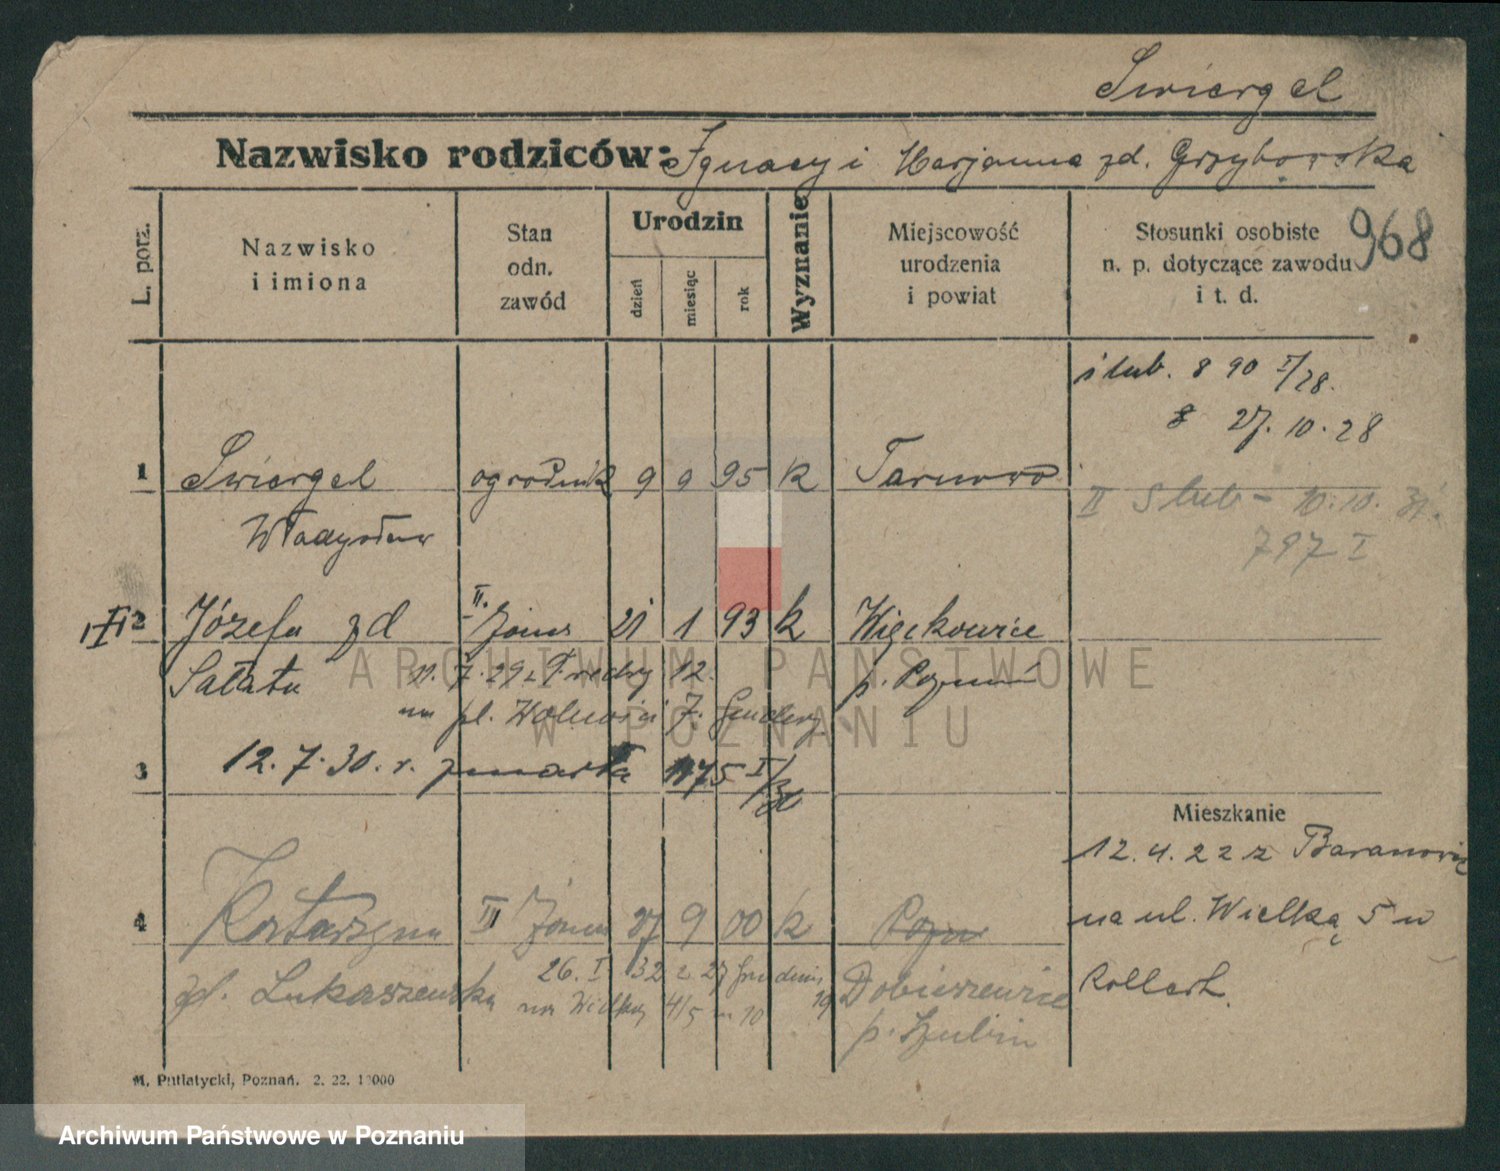 Swiergel
Nazwisko rodziców: Ignacy i Marjanna zd. Grzybowska
968
L. porz.
Nazwisko i imiona
Stan odn. zawód
Urodzin
dzień
miesiąc
rok
Wyznanie
Miejscowość urodzenia i powiat
Stosunki osobiste n. p. dotyczące zawodu i t. d.
ślub. 890 I/28.
27.10.28
1 Swiergel ogrodnik 9 9 95 k Tarnowo
II Slub - 10.10.31.
Władysław
797 I
2 Józefa zd II. żona 21 1 93 k Więckowice
Sałata 11.7.29 z Fredry 12. p. Poznań
na pl. Wolności 7.
3 12.7.30. r. zmarła 1175 I/30
Mieszkanie
12.4.22 z Baranowic
4 Katarzyna III żona 27 9 00 k Pozn
na ul. Wielką 5 u
26. I 32 z 27 Grudnia 19
zd. Łukaszewska Dobieszewice
na Wielką 4/5 m 10
p. Szubin
M. Putiatycki, Poznań. 2. 22. 1000
ARCHIWUM PAŃSTWOWE
W POZNANIU
Archiwum Państwowe w Poznaniu